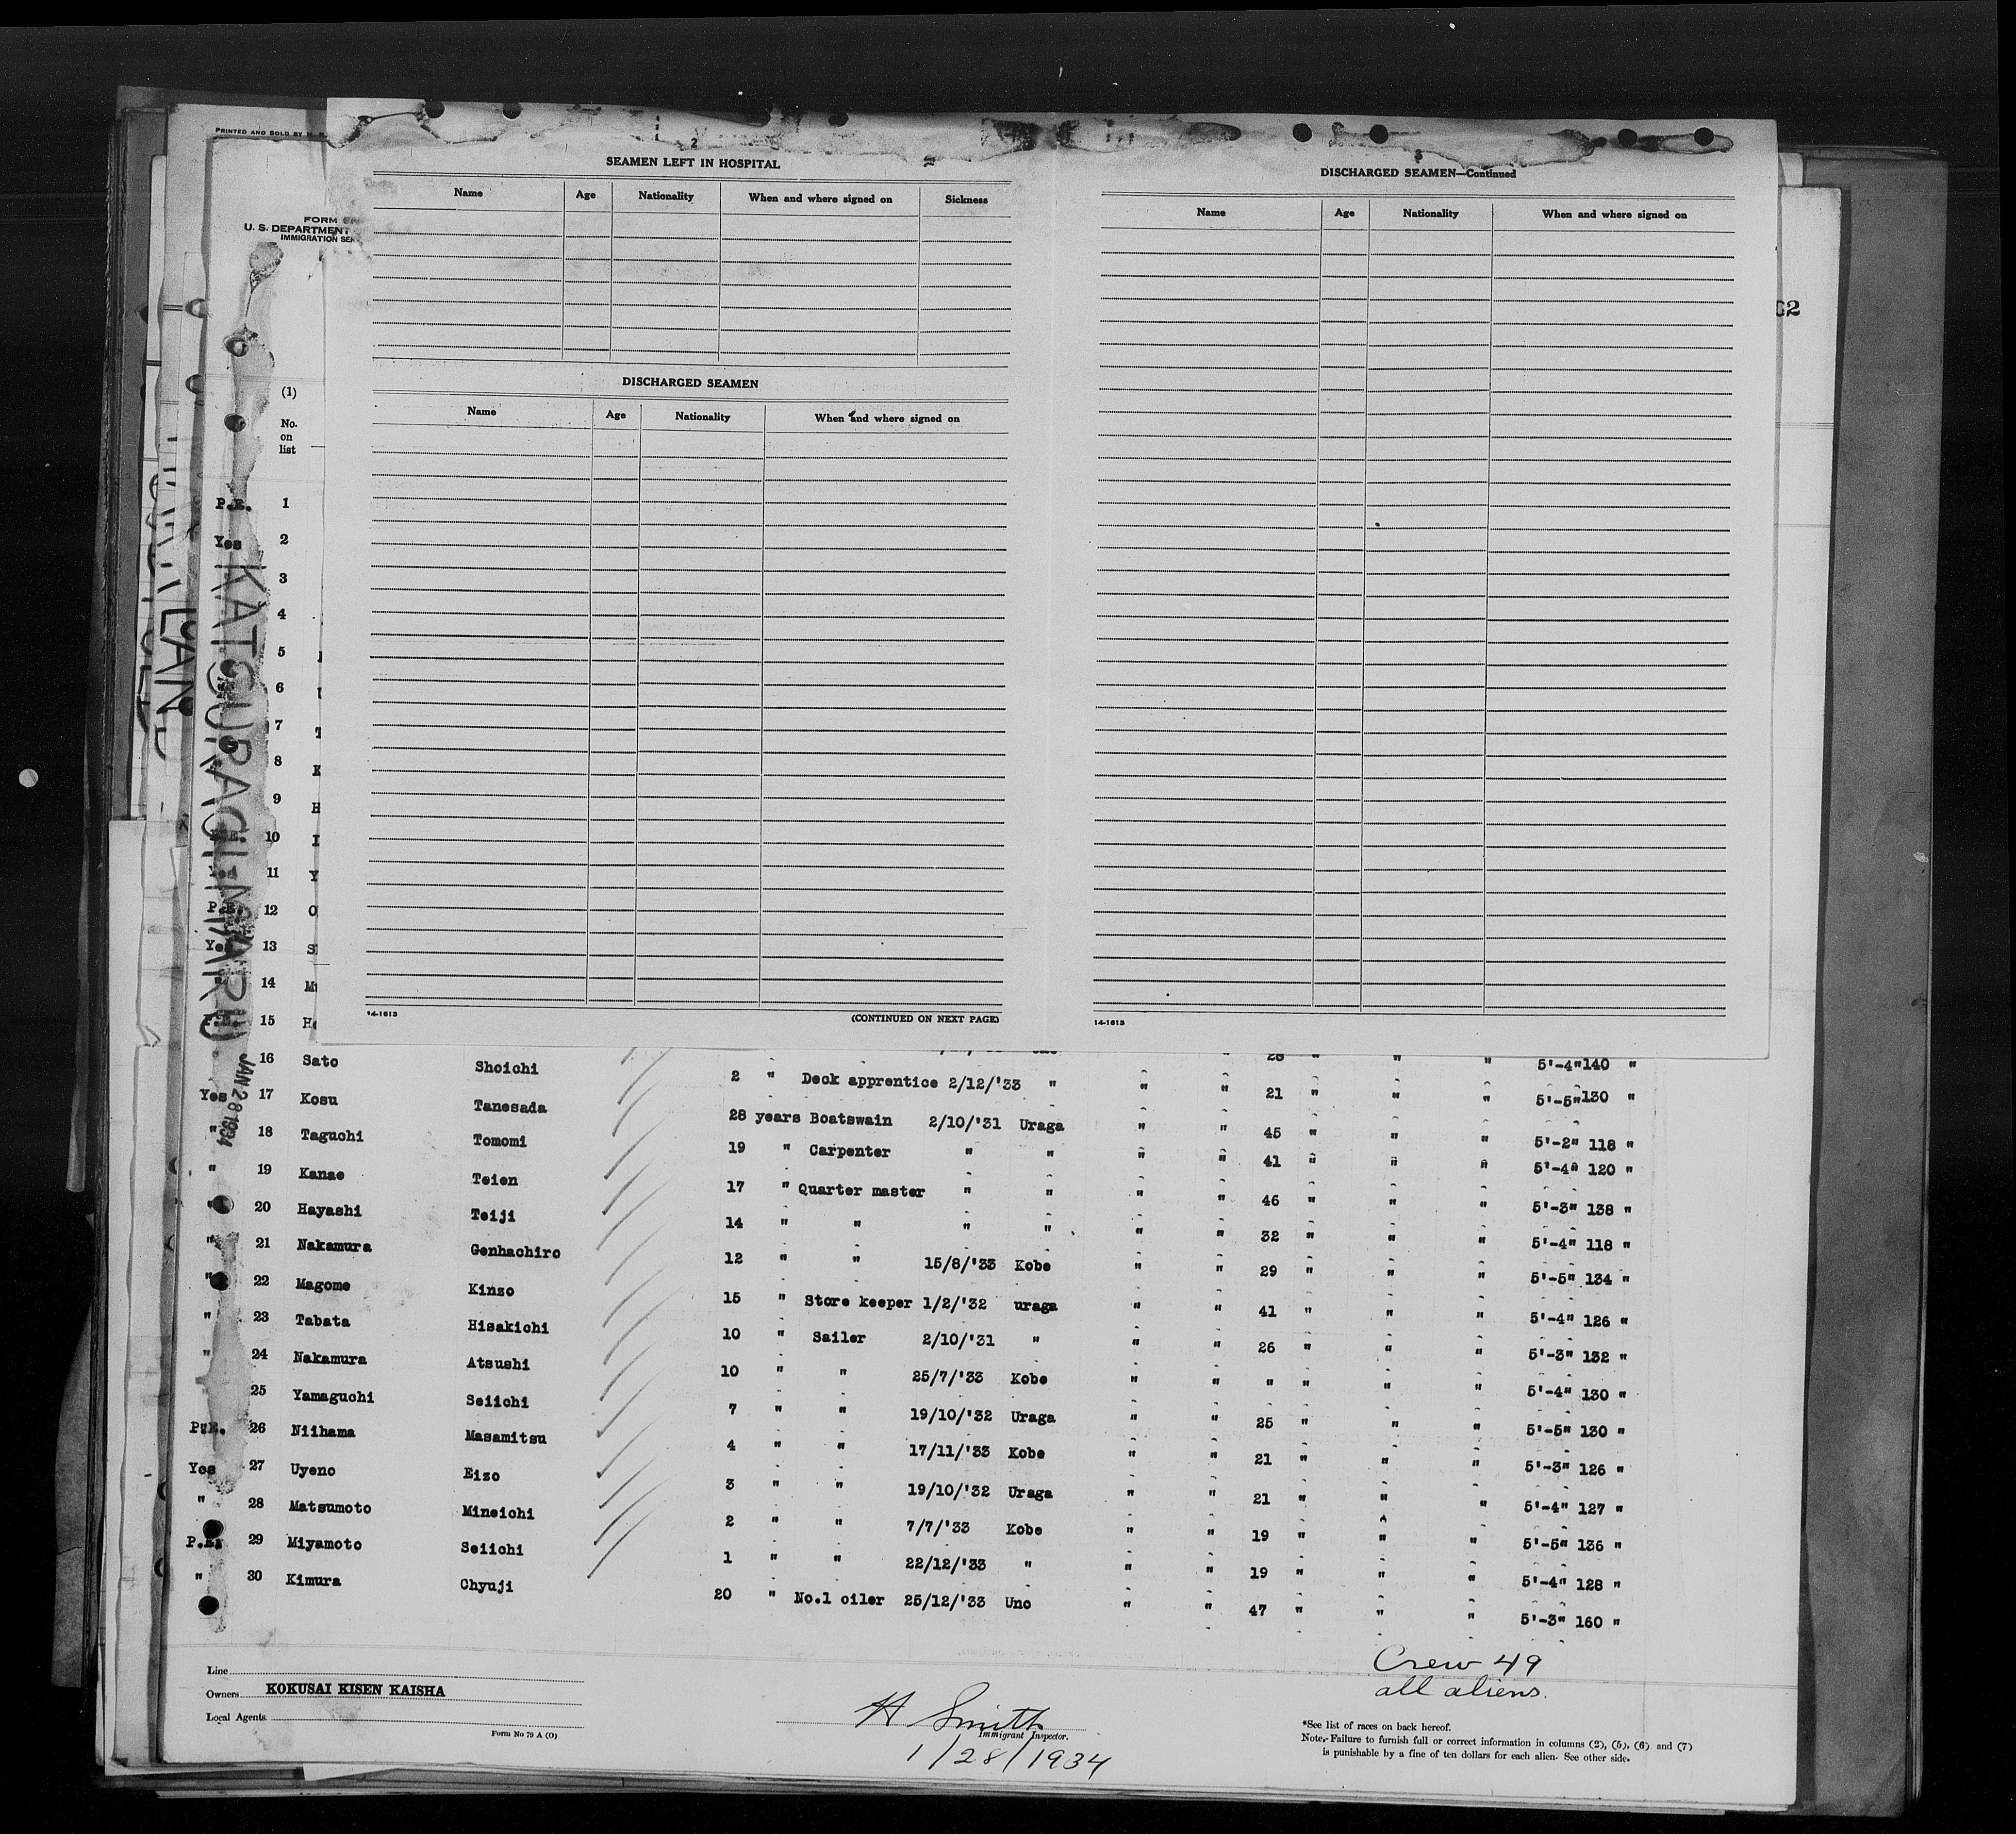 PRINTED AND SOLD BY
2
SEAMEN LEFT IN HOSPITAL
Name Age Nationality When and where signed on Sickness
DISCHARGED SEAMEN
Name Age Nationality When and where signed on
14-1613
(CONTINUED ON NEXT PAGE)
3
DISCHARGED SEAMEN—Continued
Name Age Nationality When and where signed on
14-1613
FORM
U. S. DEPARTMENT
IMMIGRATION SER
62
(1)
No.
on
list
P.E. 1
Yes 2
3
4
5
6
7 T
8 K
9 H
10 I
11 Y
P.E. 12 O
Yes 13 S
14 M
15 H
KATSURAGI MARU
JAN 28 1934
16 Sato Shoichi 2 " Deck apprentice 2/12/'33 " " " 21 " " " 5'-5" 130 "
28 " " " 5'-4" 140 "
Yes 17 Kosu Tanesada 28 years Boatswain 2/10/'31 Uraga " " 45 " " " 5'-2" 118 "
" 18 Taguchi Tomomi 19 " Carpenter " " " " 41 " " " 5'-4" 120 "
" 19 Kanae Teien 17 " Quarter master " " " " 46 " " " 5'-3" 138 "
" 20 Hayashi Teiji 14 " " " " " " 32 " " " 5'-4" 118 "
" 21 Nakamura Genhachiro 12 " " 15/8/'33 Kobe " " 29 " " " 5'-5" 134 "
" 22 Magome Kinzo 15 " Store keeper 1/2/'32 uraga " " 41 " " " 5'-4" 126 "
" 23 Tabata Hisakichi 10 " Sailer 2/10/'31 " " " 26 " " " 5'-3" 132 "
" 24 Nakamura Atsushi 10 " " 25/7/'33 Kobe " " " " " " 5'-4" 130 "
25 Yamaguchi Seiichi 7 " " 19/10/'32 Uraga " " 25 " " " 5'-5" 130 "
P.E. 26 Niihama Masamitsu 4 " " 17/11/'33 Kobe " " 21 " " " 5'-3" 126 "
Yes 27 Uyeno Eizo 3 " " 19/10/'32 Uraga " " 21 " " " 5'-4" 127 "
" 28 Matsumoto Mineichi 2 " " 7/7/'33 Kobe " " 19 " " " 5'-5" 136 "
P.E. 29 Miyamoto Seiichi 1 " " 22/12/'33 " " " 19 " " " 5'-4" 128 "
" 30 Kimura Chyuji 20 " No.1 oiler 25/12/'33 Uno " " 47 " " " 5'-3" 160 "
Crew 49
all aliens.
Line
Owners KOKUSAI KISEN KAISHA
Local Agents
Form No 79 A (O)
H Smith
Immigrant Inspector.
1/28/1934
*See list of races on back hereof.
Note.-Failure to furnish full or correct information in columns (2), (5), (6) and (7)
is punishable by a fine of ten dollars for each alien. See other side.